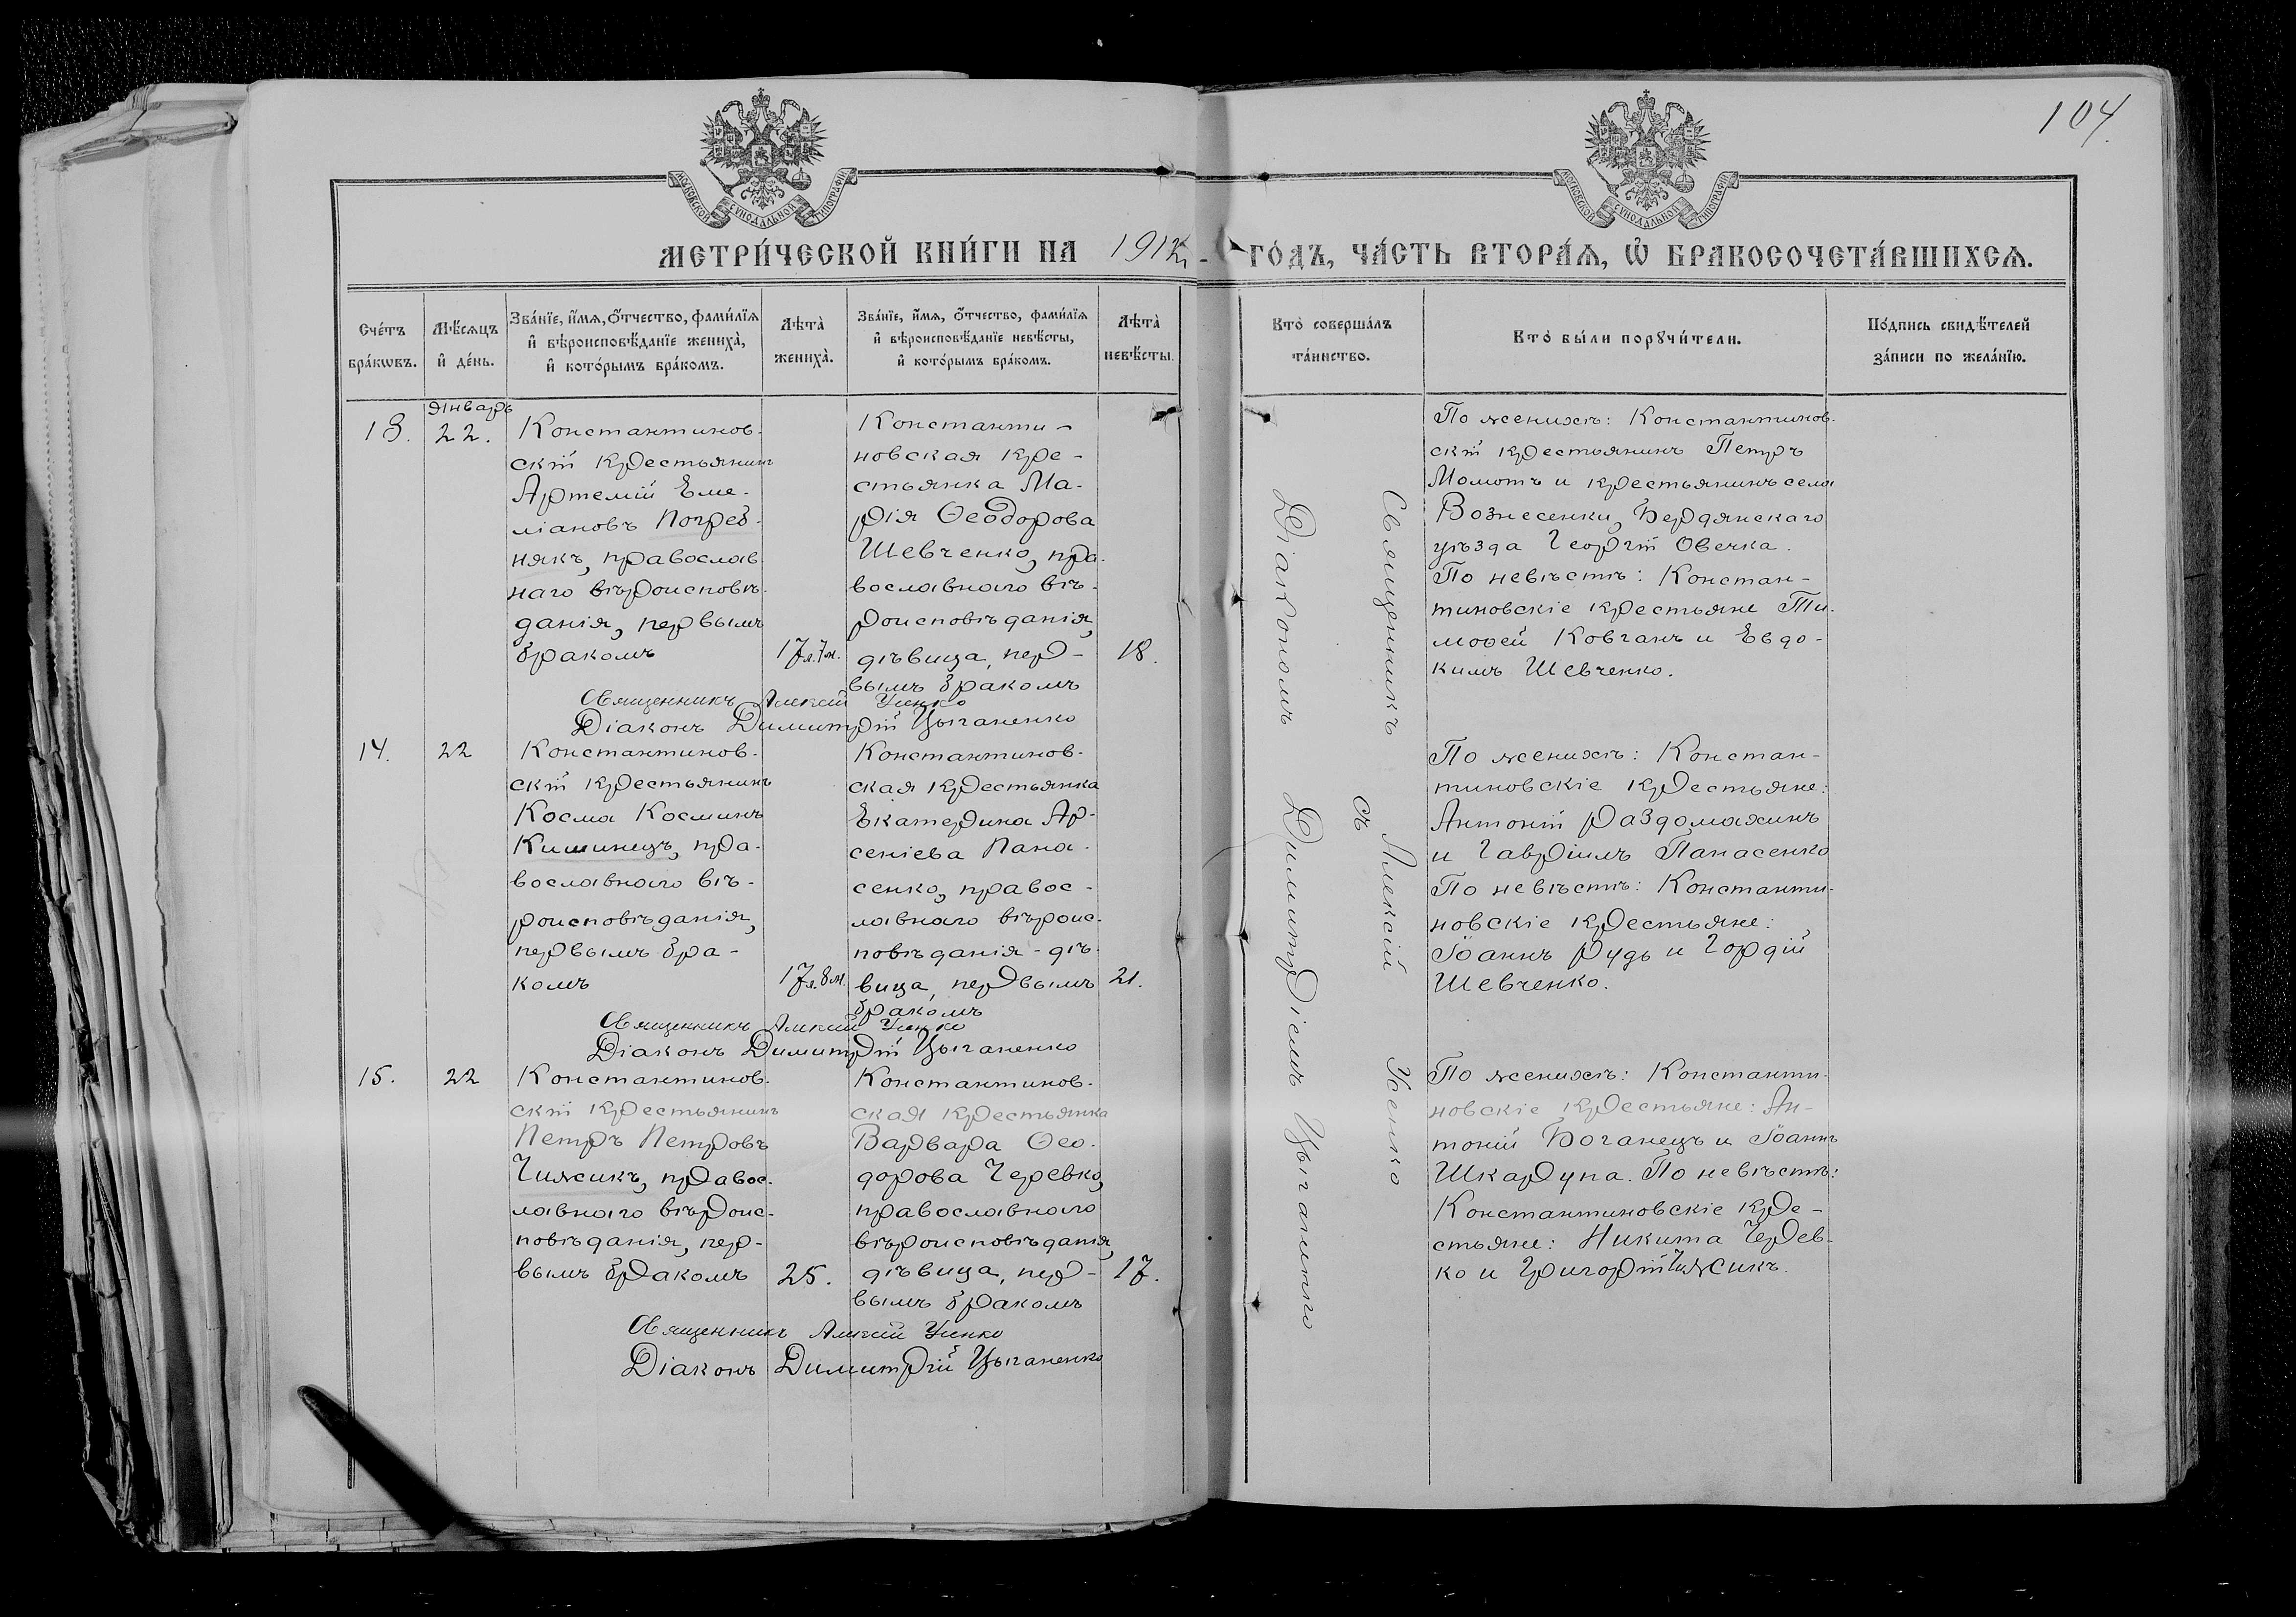 104.
МОСКОВСКОЙ СѴНОДАЛЬНОЙ ТИПОГРАФІИ
МОСКОВСКОЙ СѴНОДАЛЬНОЙ ТИПОГРАФІИ
МЕТРИ́ЧЕСКОЙ КНИ́ГИ НА 191
ГО́ДЪ, ЧА́СТЬ ВТОРА́Ѧ, Ѽ БРАКОСОЧЕТА́ВШИХСѦ.
Сче́тъ
бра́кѡвъ.
Мѣ́сѧцъ
и҆ де́нь.
Зва́нїе, и҆́мѧ, ѻ҆́тчество, фами́лїѧ
и҆ вѣроисповѣ́данїе жениха̀,
и҆ кото́рымъ бра́комъ.
Лѣта̀
жениха̀.
Зва́нїе, и҆́мѧ, ѻ҆́тчество, фами́лїѧ
и҆ вѣроисповѣ́данїе невѣ́сты,
и҆ кото́рымъ бра́комъ.
Лѣта̀
невѣ́сты.
Кто̀ соверша́лъ
та́инство.
Кто̀ бы́ли порꙋчи́тели.
По́дпись свидѣ́телей
за́писи по жела́нїю.
13.
Январь
22.
Константинов-
скій крестьянинъ
Артемій Еме-
ліановъ Погреб-
някъ, православ-
наго вѣроисповѣ-
данія, первымъ
бракомъ
17 л. 7 м.
Константи-
новская кре-
стьянка Ма-
рія Ѳеодорова
Шевченко, пра-
вославнаго вѣ-
роисповѣданія,
дѣвица, пер-
вымъ бракомъ
18.
Священникъ Алексій Усенко
Діаконъ Димитрій Цыганенко
По женихѣ: Константинов-
скій крестьянинъ Петръ
Момотъ и крестьянинъ села
Вознесенки, Бердянскаго
уѣзда Георгій Овечка.
По невѣстѣ: Констан-
тиновскіе крестьяне Ти-
моѳей Ковганъ и Евдо-
кимъ Шевченко.
14.
22
Константинов-
скій крестьянинъ
Косма Косминъ
Кишинецъ, пра-
вославнаго вѣ-
роисповѣданія,
первымъ бра-
комъ
17 л. 8 м.
Константинов-
ская крестьянка
Екатерина Ар-
сеніева Пана-
сенко, правос-
лавнаго вѣроис-
повѣданія - дѣ-
вица, первымъ
бракомъ
21.
Священникъ Алексій Усенко
Діаконъ Димитрій Цыганенко
По женихѣ: Констан-
тиновскіе крестьяне:
Антоній Раздомахинъ
и Гавріилъ Панасенко
По невѣстѣ: Константи-
новскіе крестьяне:
Іоаннъ Рудь и Гордій
Шевченко.
15.
22
Константинов-
скій крестьянинъ
Петръ Петровъ
Чижикъ, правос-
лавнаго вѣроис-
повѣданія, пер-
вымъ бракомъ
25.
Константинов-
ская крестьянка
Варвара Ѳео-
дорова Черевко,
православнаго
вѣроисповѣданія,
дѣвица, пер-
вымъ бракомъ
17.
Священникъ Алексій Усенко
Діаконъ Димитрій Цыганенко
По женихѣ: Константи-
новскіе крестьяне: Ан-
тоній Боганецъ и Іоаннъ
Шкарупа. По невѣстѣ:
Константиновскіе кре-
стьяне: Никита Черев-
ко и Григорій Чижикъ.
Священникъ Алексій Усенко
съ
Діакономъ Димитріемъ Цыганенко